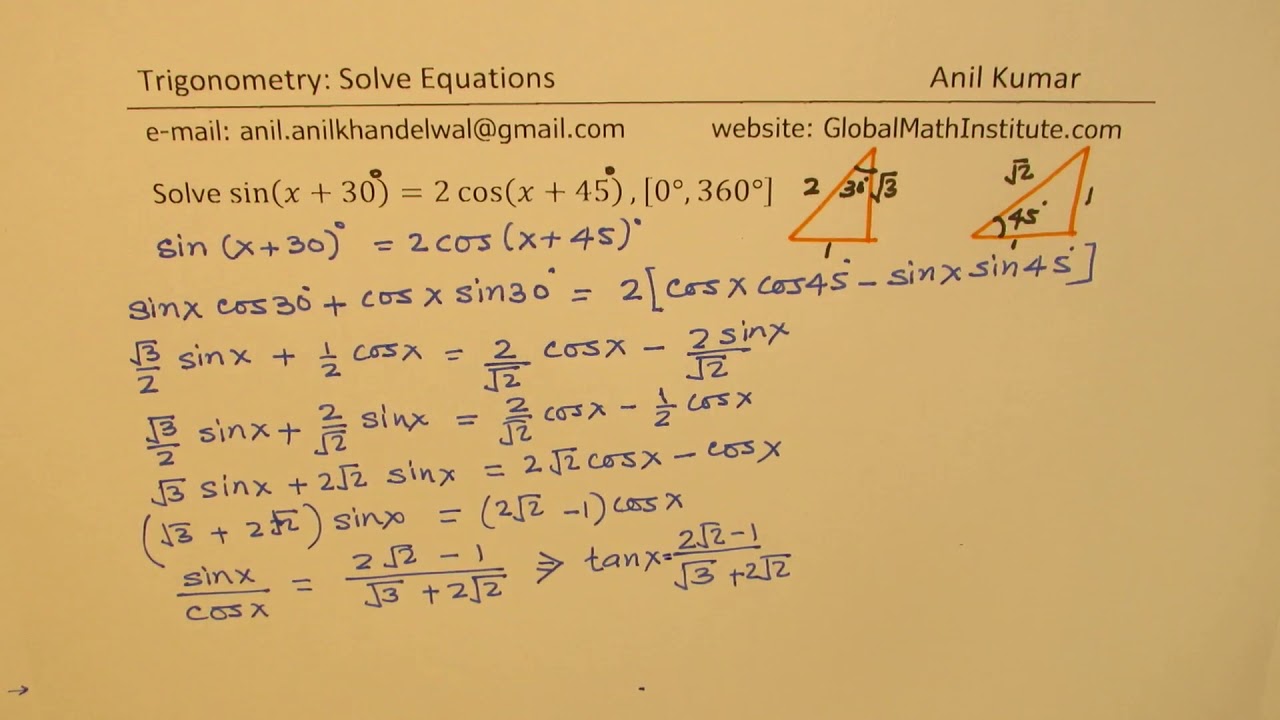 Trigonometry: Solve Equations Anil Kumar
e-mail: anil.anilkhandelwal@gmail.com website: GlobalMathInstitute.com
Solve sin(x + 30°) = 2 cos(x + 45°), [0°, 360°]
2 30° √3 1
√2 45° 1 1
sin (x+30)° = 2cos (x+45)°
sinx cos30° + cosx sin30° = 2[cosx cos45° - sinx sin45°]
√3/2 sinx + 1/2 cosx = 2/√2 cosx - 2sinx/√2
√3/2 sinx + 2/√2 sinx = 2/√2 cosx - 1/2 cosx
√3 sinx + 2√2 sinx = 2√2 cosx - cosx
(√3 + 2√2) sinx = (2√2 - 1) cosx
sinx/cosx = 2√2 - 1/√3 + 2√2 ⇒ tanx = 2√2-1/√3 + 2√2
→